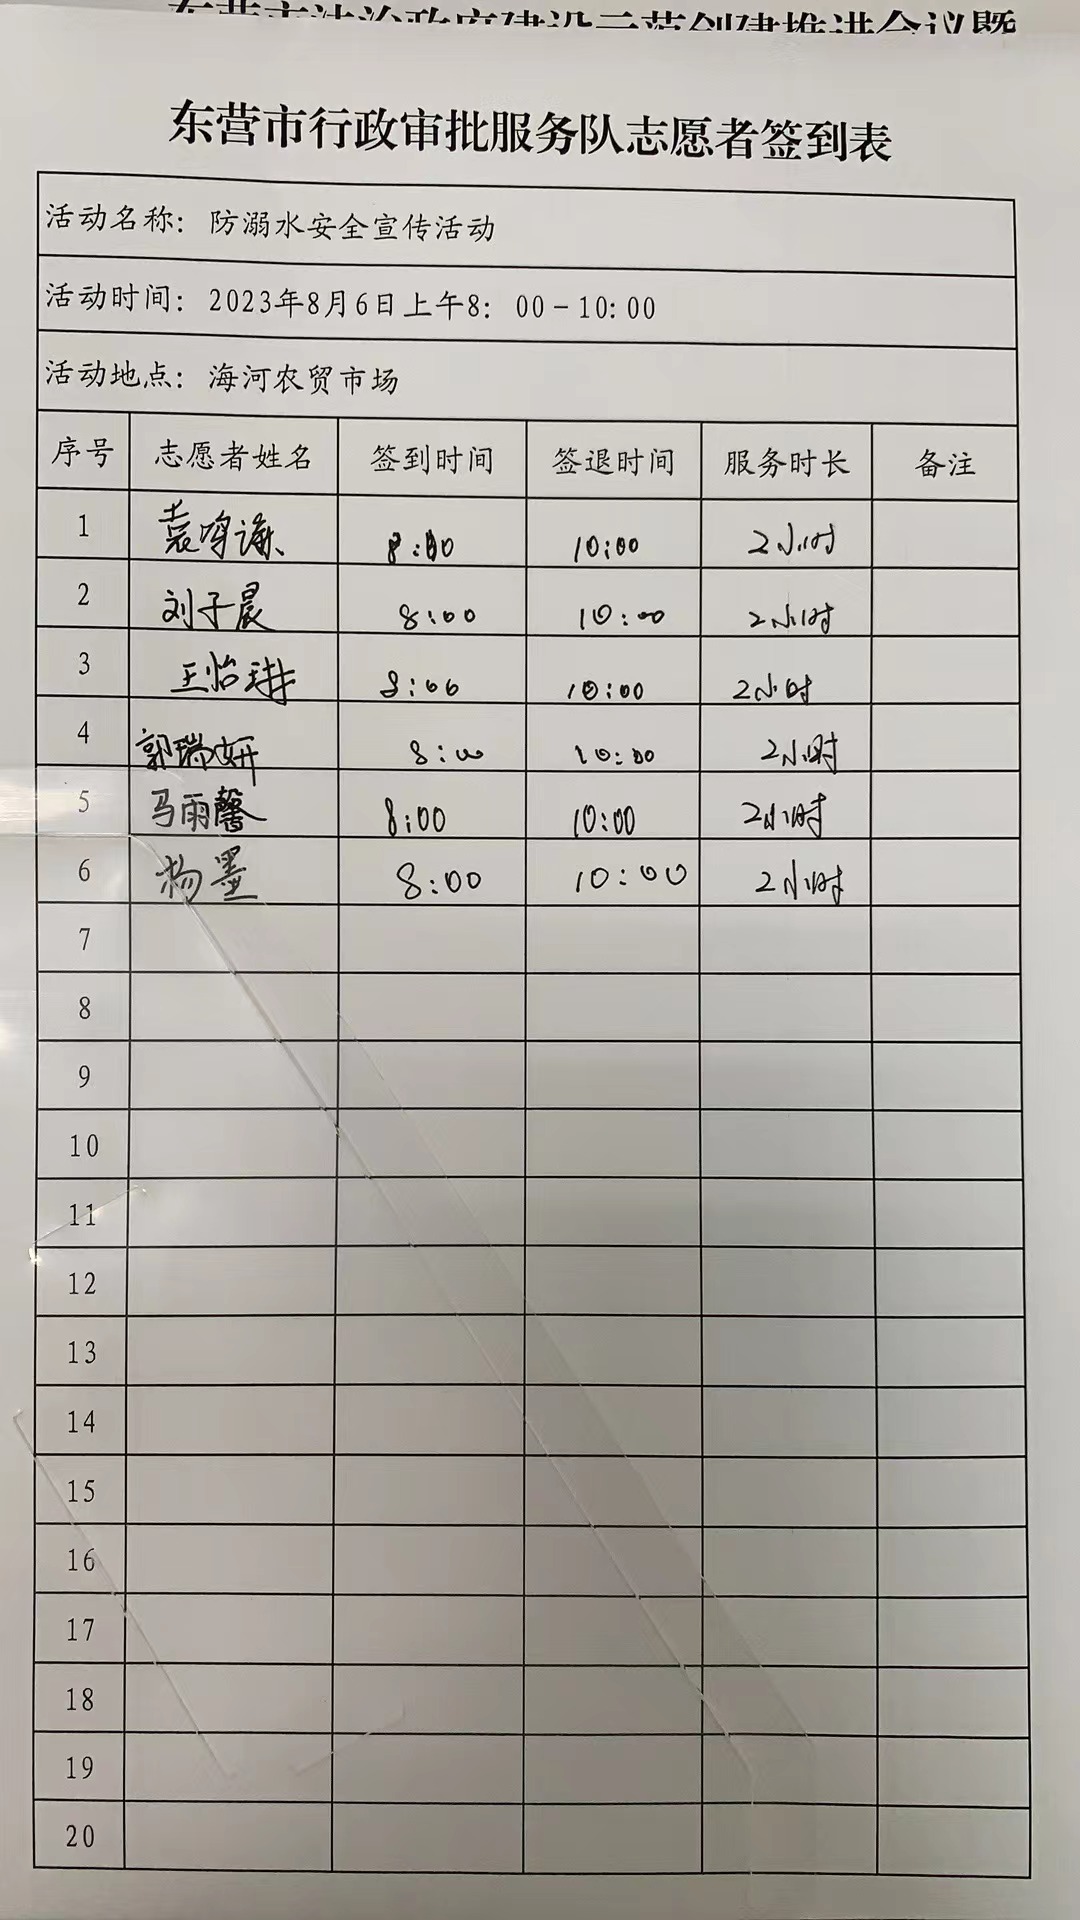 东营市法治政府建设示范创建推进会议暨
东营市行政审批服务队志愿者签到表
活动名称：防溺水安全宣传活动
活动时间：2023年8月6日上午8：00－10：00
活动地点：海河农贸市场
序号 志愿者姓名 签到时间 签退时间 服务时长 备注
1 袁鸣谦 8:00 10:00 2小时
2 刘子晨 8:00 10:00 2小时
3 王怡琳 8:00 10:00 2小时
4 郭瑞妍 8:00 10:00 2小时
5 马雨馨 8:00 10:00 2小时
6 杨墨 8:00 10:00 2小时
7
8
9
10
11
12
13
14
15
16
17
18
19
20